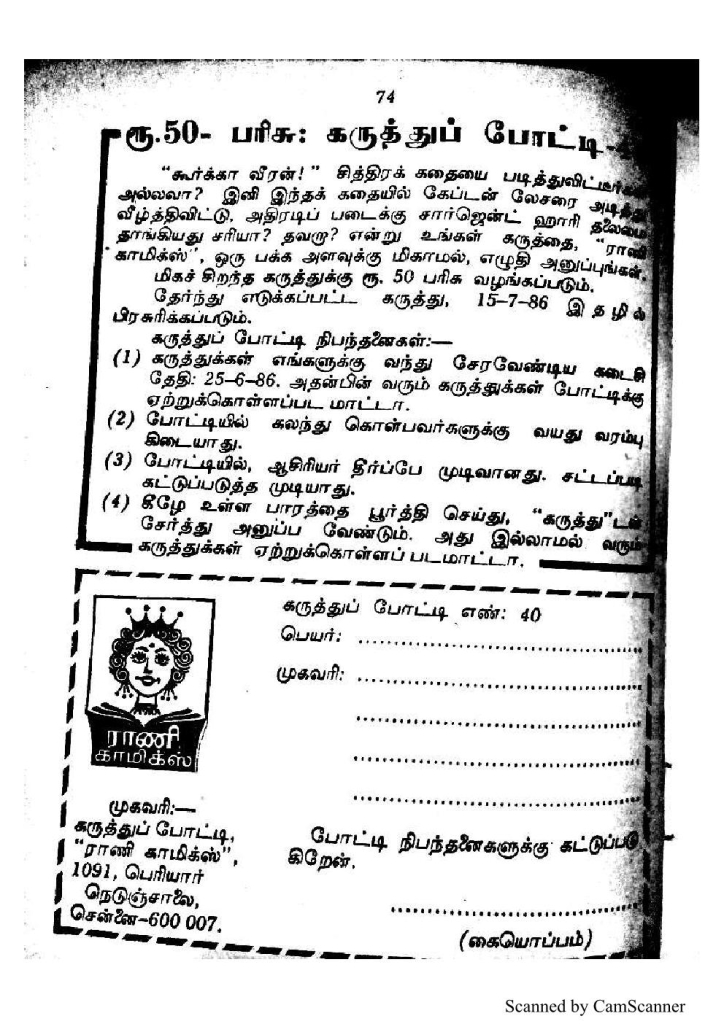 74
ரூ.50- பரிசு: கருத்துப் போட்டி-4
"கூர்க்கா வீரன்!" சித்திரக் கதையை படித்துவிட்டீர்கள்
அல்லவா? இனி இந்தக் கதையில் கேப்டன் லேசரை அடித்து
வீழ்த்திவிட்டு, அதிரடிப் படைக்கு சார்ஜெண்ட் ஹாரி தலைமை
தாங்கியது சரியா? தவறா? என்று உங்கள் கருத்தை, "ராணி
காமிக்ஸ்", ஒரு பக்க அளவுக்கு மிகாமல், எழுதி அனுப்புங்கள்.
மிகச் சிறந்த கருத்துக்கு ரூ. 50 பரிசு வழங்கப்படும்.
தேர்ந்து எடுக்கப்பட்ட கருத்து, 15-7-86 இதழில்
பிரசுரிக்கப்படும்.
கருத்துப் போட்டி நிபந்தனைகள்:—
(1) கருத்துக்கள் எங்களுக்கு வந்து சேரவேண்டிய கடைசி
தேதி: 25-6-86. அதன்பின் வரும் கருத்துக்கள் போட்டிக்கு
ஏற்றுக்கொள்ளப்பட மாட்டா.
(2) போட்டியில் கலந்து கொள்பவர்களுக்கு வயது வரம்பு
கிடையாது.
(3) போட்டியில், ஆசிரியர் தீர்ப்பே முடிவானது. சட்டப்படி
கட்டுப்படுத்த முடியாது.
(4) கீழே உள்ள பாரத்தை பூர்த்தி செய்து, "கருத்து"டன்
சேர்த்து அனுப்ப வேண்டும். அது இல்லாமல் வரும்
கருத்துக்கள் ஏற்றுக்கொள்ளப் படமாட்டா.
கருத்துப் போட்டி எண்: 40
பெயர்:
முகவரி:
ராணி
காமிக்ஸ்
முகவரி:—
கருத்துப் போட்டி,
"ராணி காமிக்ஸ்",
1091, பெரியார்
நெடுஞ்சாலை,
சென்னை-600 007.
போட்டி நிபந்தனைகளுக்கு கட்டுப்படு
கிறேன்.
(கையொப்பம்)
Scanned by CamScanner